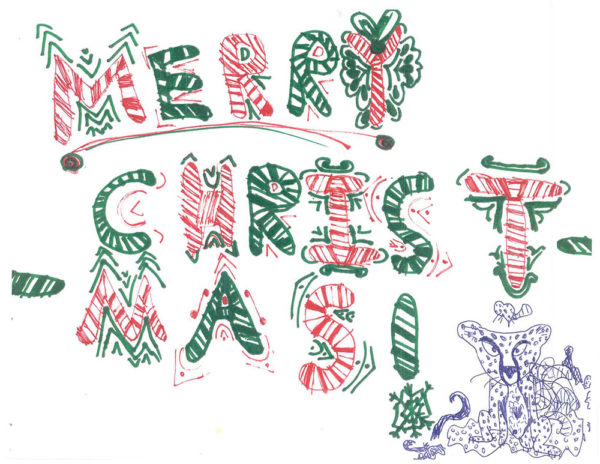 MERRY
CHRIST-
-MAS!